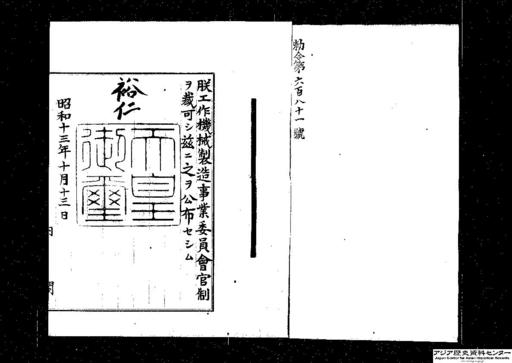 勅令第六百八十一號
朕工作機械製造事業委員會官制
ヲ裁可シ茲ニ之ヲ公布セシム
裕仁
天皇御璽
昭和十三年十月十三日
アジア歴史資料センター
Japan Center for Asian Historical Records